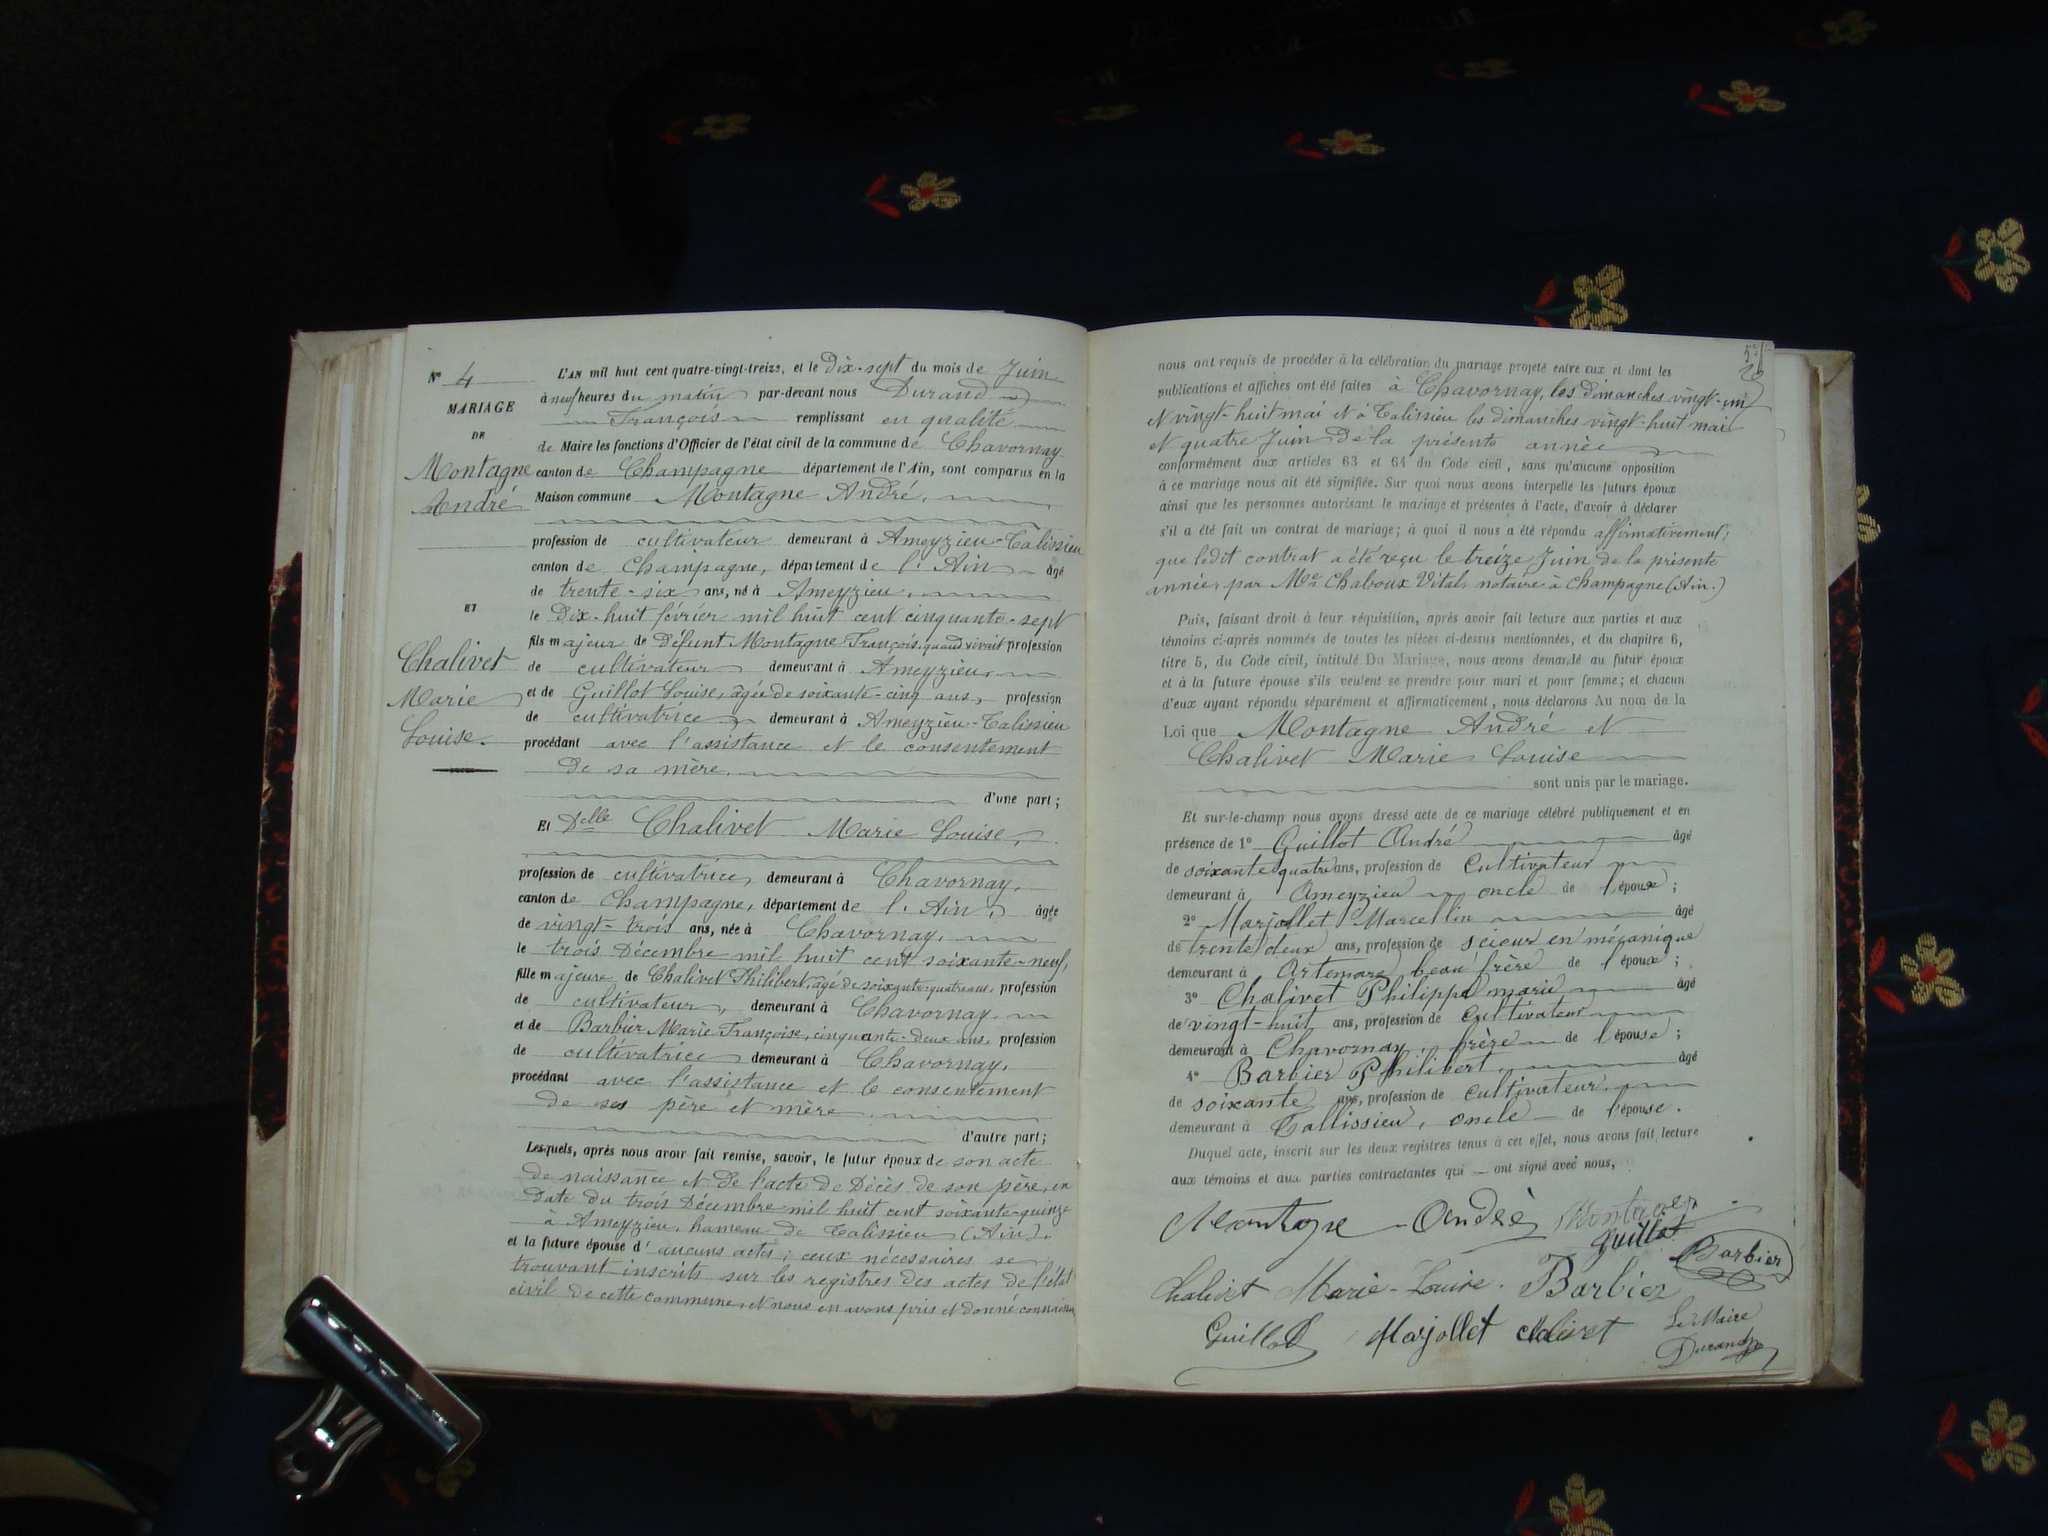 N° 4
MARIAGE
DE
Montagne
André
ET
Chalivet
Marie
Louise.
L'AN mil huit cent quatre-vingt-treize, et le Dix-sept du mois de Juin
à neuf heures du matin par-devant nous Durand
François remplissant en qualité
de Maire les fonctions d'Officier de l'état civil de la commune de Chavornay
canton de Champagne département de l'Ain, sont comparus en la
Maison commune Montagne André,
profession de cultivateur demeurant à Ameyzieu-Talissieu
canton de Champagne, département de l'Ain âgé
de trente-six ans, né à Ameyzieu,
le Dix-huit février mil huit cent cinquante-sept
fils majeur de Défunt Montagne François, quand vivait profession
de cultivateur demeurant à Ameyzieu,
et de Guillot Louise, âgée de soixante-cinq ans, profession
de cultivatrice demeurant à Ameyzieu-Talissieu
procédant avec l'assistance et le consentement
de sa mère.
d'une part;
Et Delle Chalivet Marie Louise,
profession de cultivatrice, demeurant à Chavornay,
canton de Champagne, département de l'Ain, âgée
de vingt-trois ans, née à Chavornay,
le trois Décembre mil huit cent soixante-neuf,
fille majeure de Chalivet Philibert, âgé de soixante-quatre ans, profession
de cultivateur, demeurant à Chavornay,
et de Barbier Marie Françoise, cinquante-deux ans, profession
de cultivatrice demeurant à Chavornay,
procédant avec l'assistance et le consentement
de ses père et mère
d'autre part;
Lesquels, après nous avoir fait remise, savoir, le futur époux de son acte
de naissance et de l'acte de Décès de son père, en
date du trois Décembre mil huit cent soixante-quinze
à Ameyzieu, hameau de Talissieu (Ain).
et la future épouse d'aucuns actes; ceux nécessaires se
trouvant inscrits sur les registres des actes de l'état
civil de cette commune, et nous en avons pris et donné
nous ont requis de procéder à la célébration du mariage projeté entre eux et dont les
publications et affiches ont été faites à Chavornay, les dimanches vingt-un
et vingt-huit mai et à Talissieu les dimanches vingt-huit mai
et quatre Juin de la présente année
conformément aux articles 63 et 64 du Code civil, sans qu'aucune opposition
à ce mariage nous ait été signifiée. Sur quoi nous avons interpellé les futurs époux
ainsi que les personnes autorisant le mariage et présentes à l'acte, d'avoir à déclarer
s'il a été fait un contrat de mariage; à quoi il nous a été répondu affirmativement;
que ledit contrat a été reçu le treize Juin de la présente
année, par Me Chaboux Vital, notaire à Champagne (Ain.)
Puis, faisant droit à leur réquisition, après avoir fait lecture aux parties et aux
témoins ci-après nommés de toutes les pièces ci-dessus mentionnées, et du chapitre 6,
titre 5, du Code civil, intitulé Du Mariage, nous avons demandé au futur époux
et à la future épouse s'ils veulent se prendre pour mari et pour femme; et chacun
d'eux ayant répondu séparément et affirmativement, nous déclarons Au nom de la
Loi que Montagne André et
Chalivet Marie Louise
sont unis par le mariage.
Et sur-le-champ nous avons dressé acte de ce mariage célébré publiquement et en
présence de 1° Guillot André âgé
de soixante quatre ans, profession de Cultivateur
demeurant à Ameyzieu oncle de l'époux;
2° Marjollet Marcellin âgé
de trente deux ans, profession de scieur en mécanique
demeurant à Artemare, beau frère de l'époux;
3° Chalivet Philippe marie âgé
de vingt-huit ans, profession de Cultivateur
demeurant à Chavornay, frère de l'épouse;
4° Barbier Philibert, âgé
de soixante ans, profession de Cultivateur,
demeurant à Tallissieu, oncle de l'épouse.
Duquel acte, inscrit sur les deux registres tenus à cet effet, nous avons fait lecture
aux témoins et aux parties contractantes qui ont signé avec nous,
Montagne André Montagne
Guillot
Barbier
Chalivet Marie-Louise. Barbier
Guillot Marjollet Chalivet
Le Maire
Durand